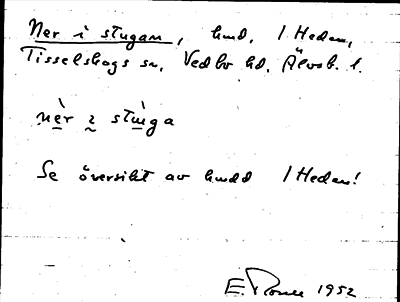 Ner i stugan, hmd. 1 Heden,
Tisselskogs sn, Vedbo hd. Älvsb. l.
nè̱r i̱ stù̱ga
Se översikt av hmdd 1 Heden!
E. 1952